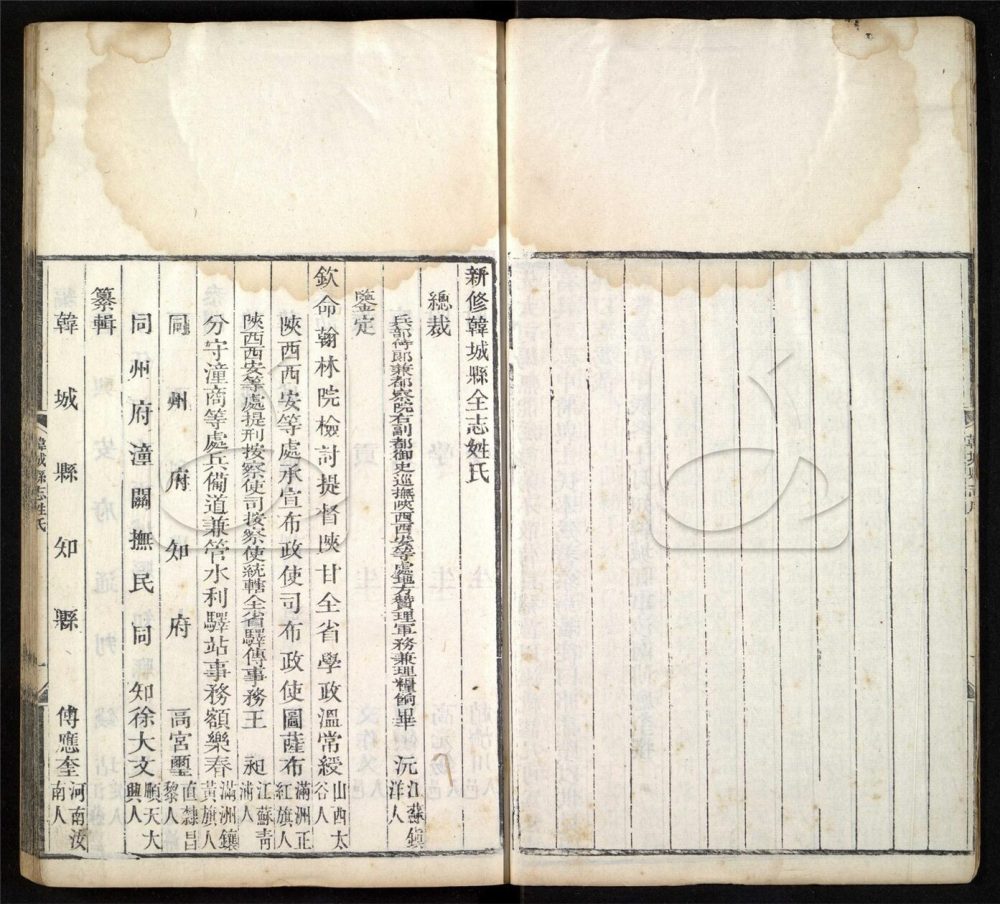 新修韓城縣全志姓氏
總裁
兵部侍郎兼都察院右副都御史巡撫陝西西安等處地方贊理軍務兼理糧餉畢沅江蘇鎮洋人
鑒定
欽命翰林院檢討提督陝甘全省學政溫常綬山西太谷人
陝西西安等處承宣布政使司布政使圖薩布滿洲正紅旗人
陝西西安等處提刑按察使司按察使統轄全省驛傳事務王昶江蘇靑浦人
分守潼商等處兵備道兼管水利驛站事務額樂春滿洲鑲黃旗人
同州府知府高宮璽直隸昌黎人
同州府潼關撫民同知徐大文順天大興人
纂輯
韓城縣知縣傅應奎河南汝南人
韓城縣志姓氏
一